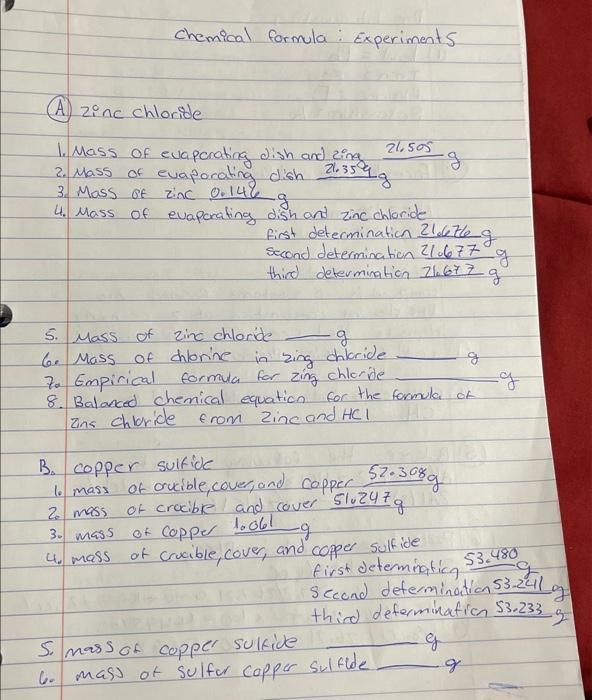 Chemical formula : Experiments
A Zinc chloride
1. Mass of evaporating dish and zing 21.505 g
2. Mass of evaporating dish 21.359 g
3. Mass of zinc 0.146 g
4. Mass of evaporating dish and zinc chloride
first determination 21.676 g
second determination 21.677 g
third determination 21.677 g
5. Mass of zinc chloride ___ g
6. Mass of chlorine in zing chloride ___ g
7. Empirical formula for zing chloride ___ g
8. Balanced chemical equation for the formula of
zinc chloride from zinc and HCl
B. copper sulfide
1. mass of crucible, cover, and copper 52.308 g
2. mass of crucible and cover 51.247 g
3. mass of copper 1.061 g
4. mass of crucible, cover, and copper sulfide
first determination 53.480 g
second determination 53.241 g
third determination 53.233 g
5. mass of copper sulfide ___ g
6. mass of sulfur copper sulfide ___ g